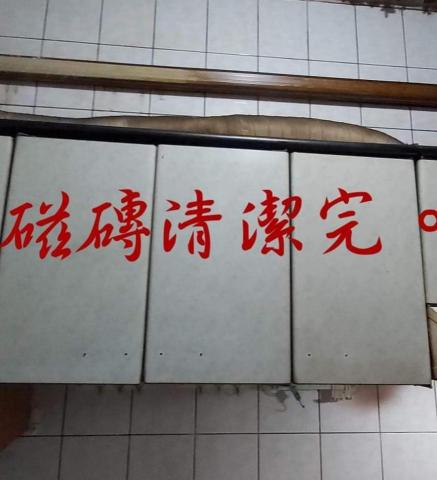 磁磚清潔完。